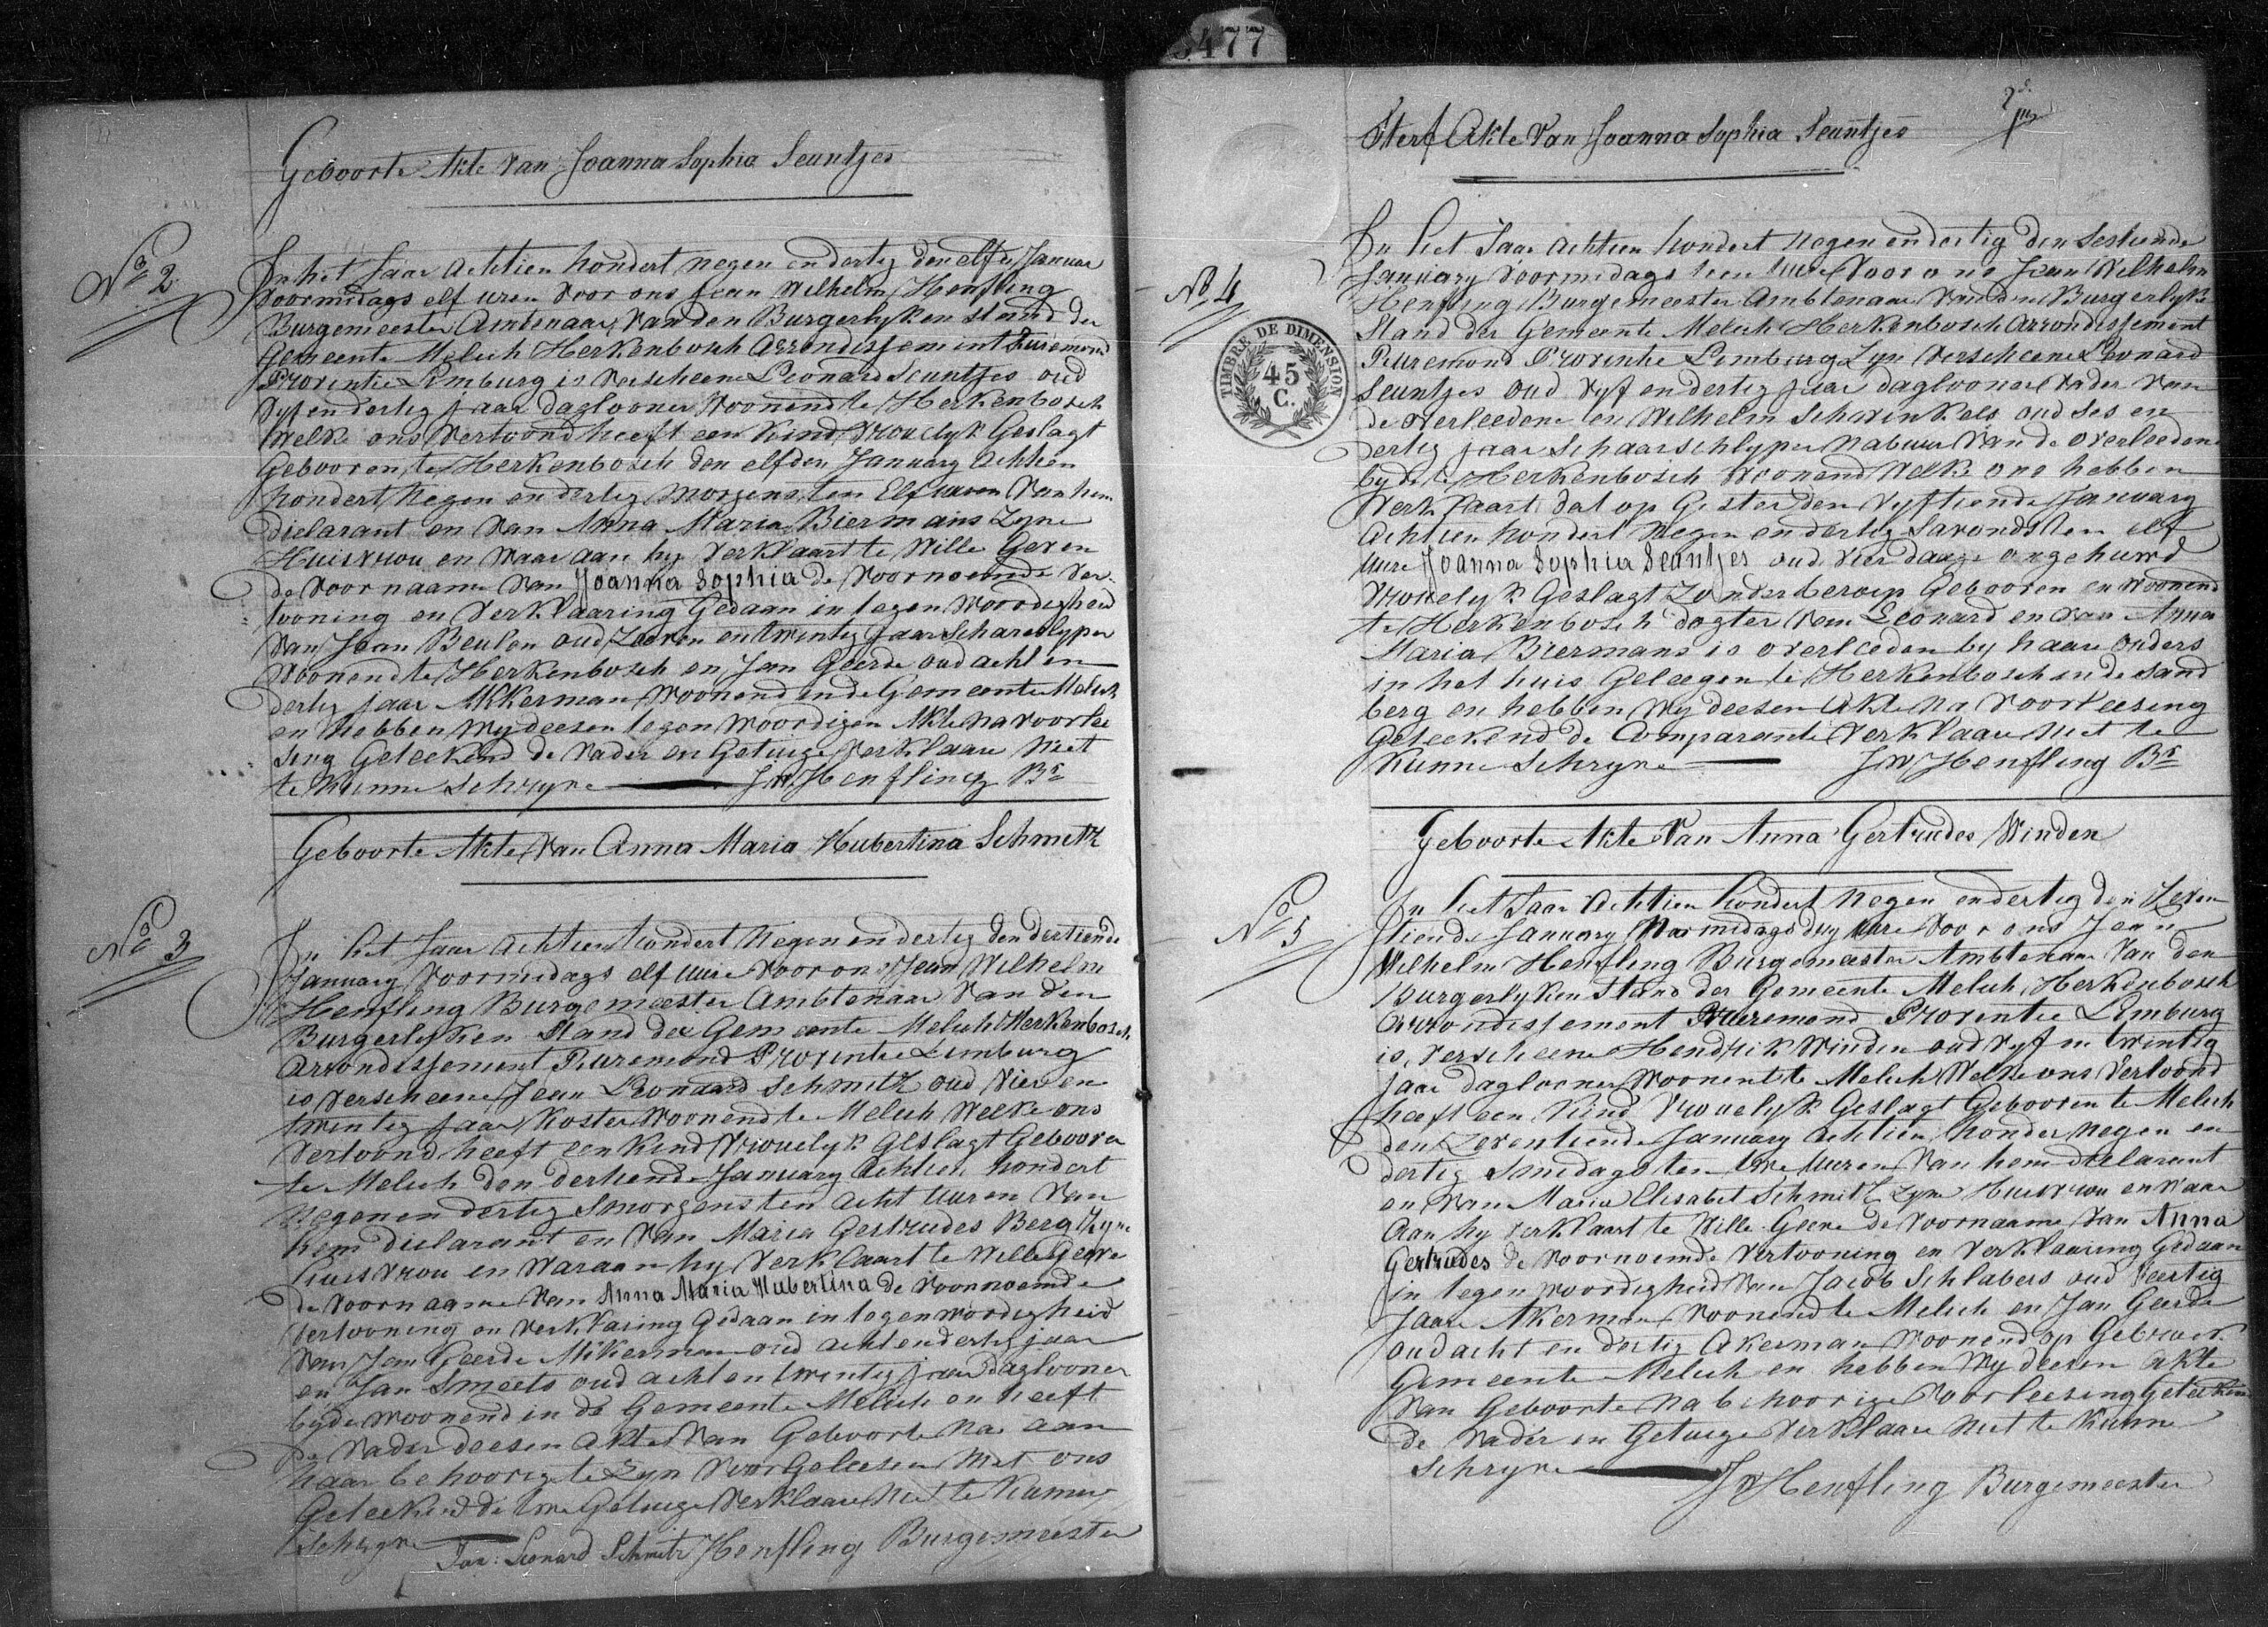 5477
Geboorte Akte van Joanna Sophia Seuntjes
No 2
In het Jaar Achtien hondert negen en dertig den elfde Januar
Voormidags elf uren Voor ons Jean Wilhelm Henfling
Burgemeester Ambtenaar van den Burgerlyken stand der
Gemeente Melich Herkenbosch Arrondissement Ruremond
Provintie Limburg is verscheene Leonard Seuntjes oud
Vyf en dertig jaar daglooner Woonend te Herkenbosch
Welke ons Vertoond heeft een Kind Vrouelyk Geslagt
Gebooren te Herkenbosch den elfden January Achtien
hondert Negen en dertig Morgens ten Elf uuren Van hem
diclarant en Van Anna Maria Biermans Zyne
Huisvrou en Waar aan hy Verklaart te Wille Geven
de Voornaame Van Joanna Sophia de Voornoemde Ver-
tooning en Verklaaring Gedaan in tegen Woordigheid
Van Jean Beulen oud Zeeven en twintig Jaar Schareslyper
Woonend te Herkenbosch en Jan Geerde oud acht en
dertig jaar Akkerman Woonend in de Gemeente Melich
en hebben Wy deesen tegen Woordigen Akte Na Voorlee
sing Geteekend de Vader en Getuige Verklaare Niet
te Kunne Schryve JW Henfling Br
Geboorte Akte Van Anna Maria Hubertina Schmitz
No 3
In het Jaar Achtien hondert Negen en dertig den dertiende
January Voormidags elf uure Voor ons Jean Wilhelm
Henfling Burgemeester Ambtenaar Van den
Burgerlyken Stand der Gemeente Melich Herkenbosch
Arrondissement Ruremond Provintie Limburg
is Verscheene Jean Leonard Schmitz oud Vier en
twintig jaar Koster Woonend te Melich Welke ons
Vertoond heeft een Kind Vrouelyk Geslagt Gebooren
te Melich den dertiende January Achtien hondert
Negen en dertig Smorgens ten Acht Uuren Van
hem diclarant en Van Maria Gertrudes Beeg Zyne
huisvrou en Waraan hy Verklaart te Wille Geeve
de Voornaame Van Anna Maria Hubertina de Voornoemde
Vertooning en Verklaring Gedaan in tegenwordigheid
Van Jan Geerde Akkerman oud acht en dertig jaar
en Jan Smeets oud acht en twintig jaar daglooner
byde Woonend in de Gemeente Melich en heeft
de Vader deesen Akte Van Geboorte Na aan
haar behoorig te Zyn Voor Geleesen Met ons
Geteekend de twe Getuige Verklaare Niet te Kunne
Schryve Joa: Leonard Schmitz Henfling Burgemeester
Sterf Akte Van Joanna Sophia Seuntjes
No 4
TIMBRE DE DIMENSION
45
C.
In het Jaar Achtien hondert Negen en dertig den Sestiende
January Voormidags tien uure Voor ons Jean Wilhelm
Henfling Burgemeester Ambtenaar Van den Burgerlyke
Stand der Gemeente Melich Herkenbosch Arrondissement
Ruremond Provintie Limburg Zyn Verscheene Leonard
Seuntjes oud Vyf en dertig jaar daglooner Vader Van
de overleedene en Wilhelm Schovinkels oud Ses en
dertig jaar Schaarschlyper Nabuur Van de overleeden
byde te Herkenbosch Woonend Welke ons hebben
Verklaart dat op Gister den Vyftiende January
Achtien hondert Negen en dertig Savonds ten elf
uure Joanna Sophia Seuntjes oud Vier daage ongehuwd
Vrouelyk Geslagt Zonder beroep Gebooren en Woonend
te Herkenbosch dogter Van Leonard en Van Anna
Maria Biermans is overleeden by haare Onders
in het huis Geleegen te Herkenbosch in de Sand
berg en hebben Wy deesen Akte Na Voorleesing
Geteekend de Comparante Verklaare Niet te
Kunne Schryve JW Henfling Br
Geboorte Akte Van Anna Gertrudes Winden
No 5
In het Jaar Achtien hondert Negen en dertig den Zeven
tiende January Namidags dry uure Voor ons Jean
Wilhelm Henfling Burgemeester Ambtenaar Van den
Burgerlyken Stand der Gemeente Melich Herkenbosch
Arrondissement Ruremond Provintie Limburg
is Verscheene Hendrik Winden oud Vyf en twintig
jaar daglooner Woonent te Melich Welke ons Vertoond
heeft een Kind Vrouelyk Geslagt Gebooren te Melich
den Zeventiende January Achtien honder Negen en
dertig Smidags ten twe Uuren Van hem diclarant
en Van Maria Elisabet Schmitz Zyne Huisvrou en Waar
aan hy Verklaart te Wille Geeve de Voornaame Van Anna
Gertrudes de Voornoemde Vertooning en Verklaaring Gedaan
in tegen woordigheid Van Jacob Schlabers oud Veertig
Jaar Akerman Woonend te Melich en Jan Geerde
oud acht en dertig Akerman Woonend op Gebroek
Gemeente Melich en hebben Wy deesen Akte
Van Geboorte Na behoorige Voorleesing Geteekend
de Vader en Getuige Verklaare Niet te Kunne
Schryve JW Henfling Burgemeester